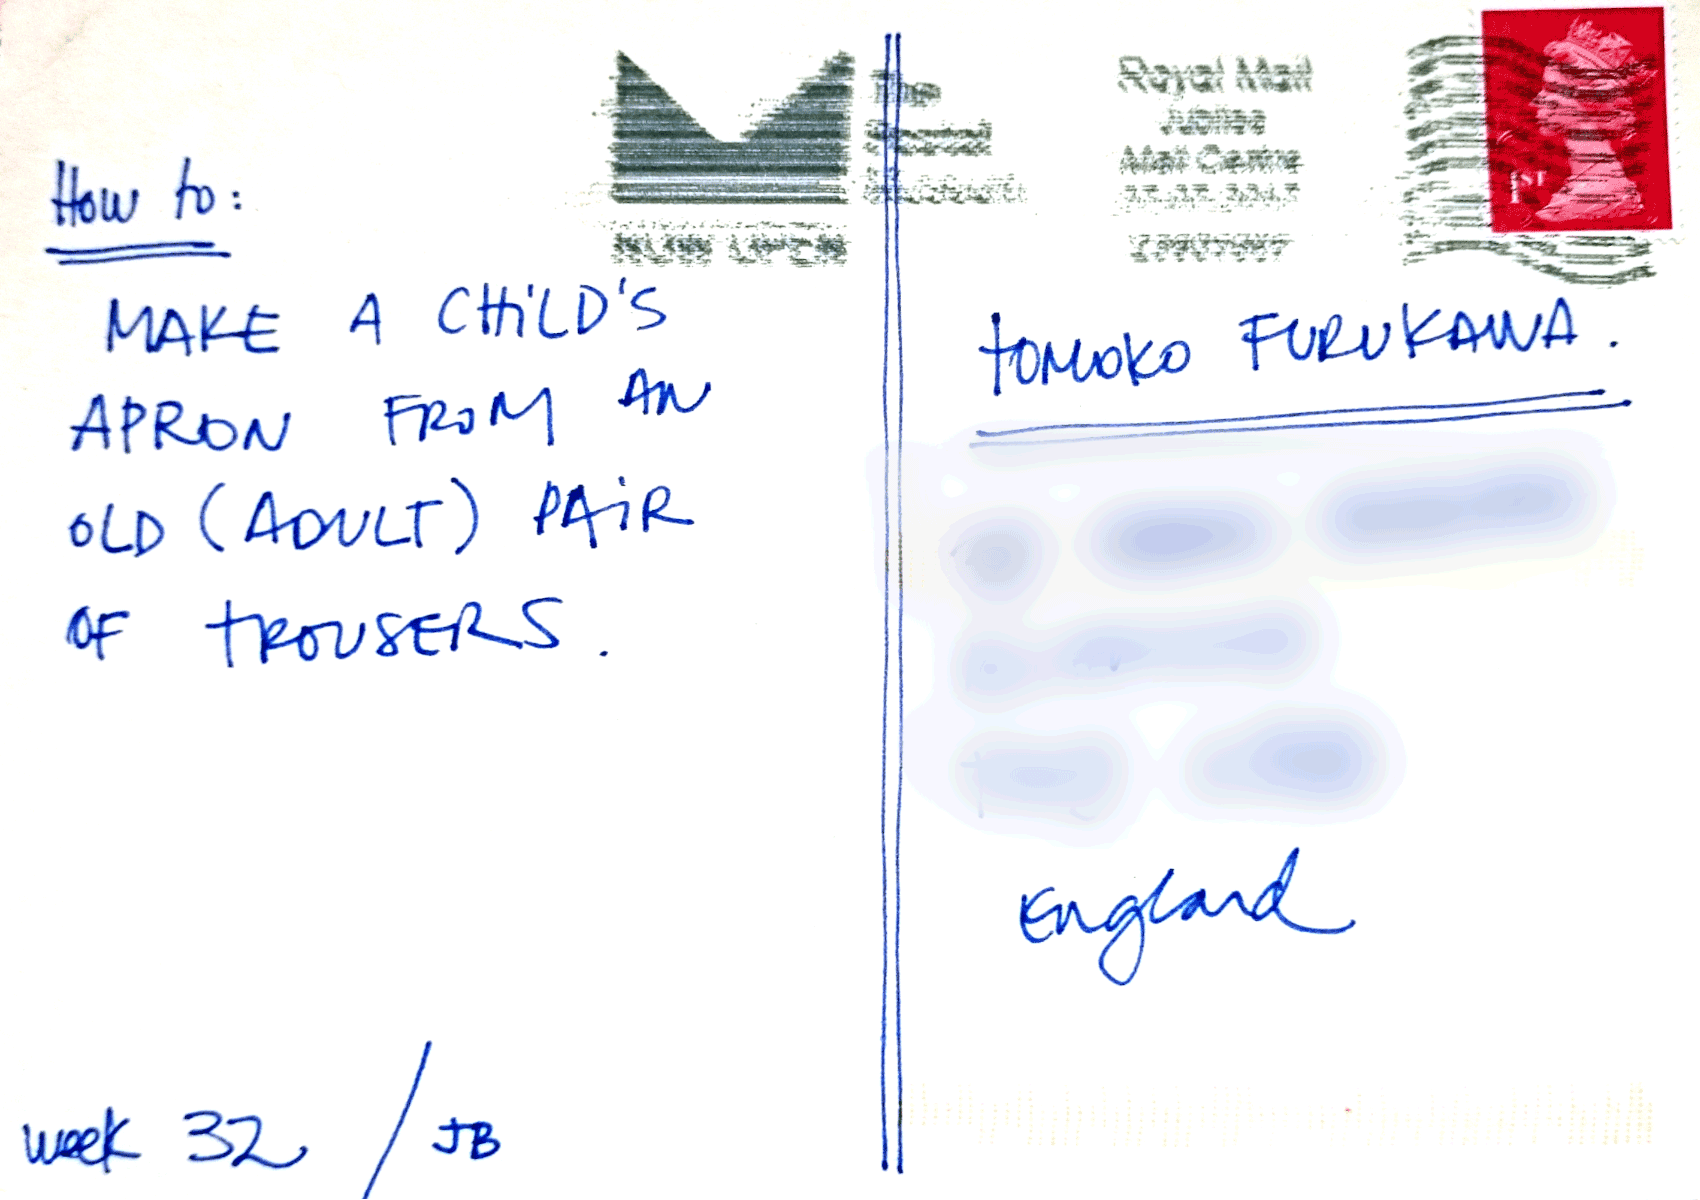 How to:
MAKE A CHILD'S
APRON FROM AN
OLD (ADULT) PAIR
OF TROUSERS.
week 32 / JB
The
Postal
Museum
NOW OPEN
Royal Mail
Jubilee
Mail Centre
1ST
TOMOKO FURUKAWA.
England